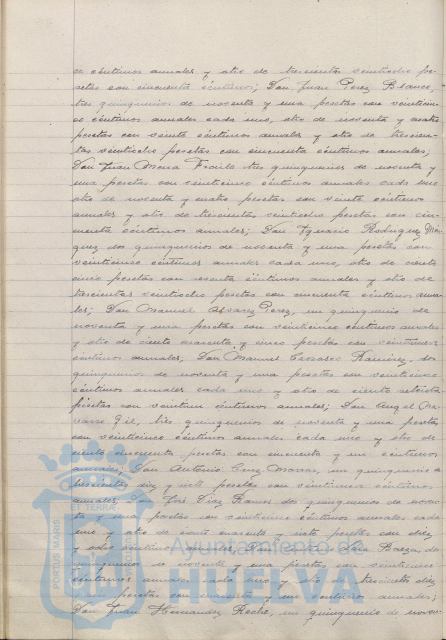 co céntimos anuales y otro de trescientas veintiocho pe-
setas con cincuenta céntimos; Don Juan Perez Blanco,
tres quinquenios de noventa y una pesetas con veinticin-
co céntimos anuales cada uno, otro de noventa y cuatro
pesetas con veinte céntimos anuales y otro de trescien-
tas veintiocho pesetas con cincuenta céntimos anuales;
Don Juan Mora tres quinquenios de noventa y
una pesetas con veinticinco céntimos anuales cada uno
otro de noventa y cuatro pesetas con veinte céntimos
anuales y otro de trescientas veintiocho pesetas con cin-
cuenta céntimos anuales; Don Ignacio Rodriguez Már-
quez dos quinquenios de noventa y una pesetas con
veinticinco céntimos anuales cada uno, otro de ciento
cinco pesetas con céntimos anuales y otro de
trescientas veintiocho pesetas con cincuenta céntimos anua-
les; Don Manuel Alvarez Perez, un quinquenio de
noventa y una pesetas con veinticinco céntimos anuales
y otro de ciento cuarenta y cinco pesetas con
céntimos anuales; Don Manuel Ramirez, dos
quinquenios de noventa y una pesetas con veinticinco
céntimos anuales cada uno y otro de ciento
pesetas con céntimos anuales; Don Angel Na-
varro Gil, tres quinquenios de noventa y una pesetas
con veinticinco céntimos anuales cada uno y otro de
ciento cincuenta pesetas con cincuenta y un céntimos
anuales; Don Antonio Cruz, un quinquenio
trescientas diez y siete pesetas con veinticinco céntimos
anuales; Don José Diaz Ramos dos quinquenios de noven-
ta y una pesetas con veinticinco céntimos anuales cada
uno y otro de ciento cuarenta y siete pesetas con diez
y ocho céntimos anuales; Don Baeza, dos
quinquenios de noventa y una pesetas con veinticinco
céntimos anuales cada uno y otro de trescientas diez
y seis pesetas con cuarenta y un céntimos anuales;
Don Juan Hernandez, un quinquenio de noven-
PORTUS MARIS
ET TERRAE
Ayuntamiento de
HUELVA